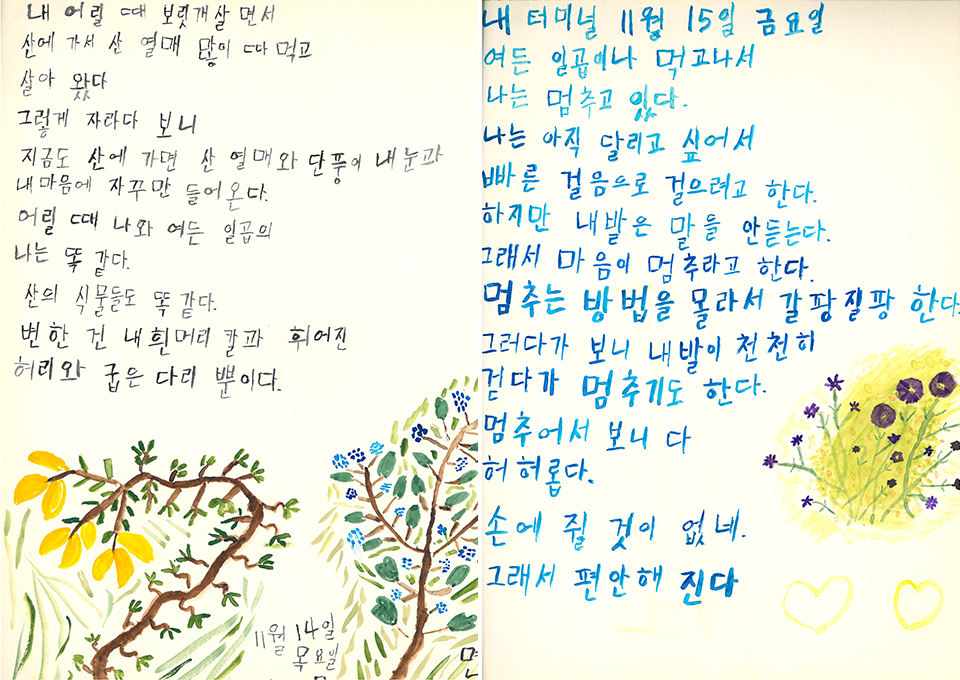 내 어릴 때 보릿개살 면서
산에 가서 산 열매 많이 따 먹고
살아 왔다
그렇게 자라다 보니
지금도 산에 가면 산 열매와 단풍이 내눈과
내마음에 자꾸만 들어온다.
어릴 때 나와 여든 일곱의
나는 똑 같다.
산의 식물들도 똑 같다.
변한 건 내 흰머리 칼과 휘어진
허리와 굽은 다리 뿐이다.
11월 14일
목요일
내 터미널 11월 15일 금요일
여든 일곱이나 먹고나서
나는 멈추고 있다.
나는 아직 달리고 싶어서
빠른 걸음으로 걸으려고 한다.
하지만 내발은 말을 안듣는다.
그래서 마음이 멈추라고 한다.
멈추는 방법을 몰라서 갈팡질팡 한다
그러다가 보니 내발이 천천히
걷다가 멈추기도 한다.
멈추어서 보니 다
허허롭다.
손에 쥘 것이 없네.
그래서 편안해 진다